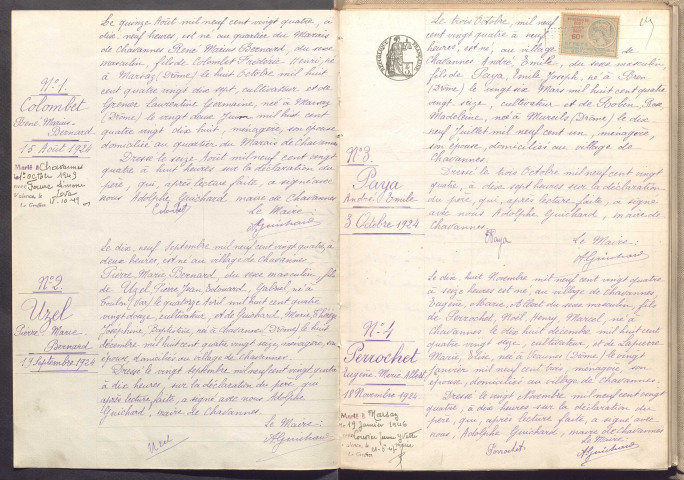 N°1
Colombet
René Marius
Bernard
15 Août 1924
Marié à Chavannes
Le quinze Août mil neuf cent vingt quatre, à
dix neuf heures, est né au quartier du Marais
de Chavannes René Marius Bernard, du sexe
masculin, fils de Colombet Frédéric Henri, né
à Marsaz (Drôme) le huit Octobre mil huit
cent quatre vingt dix sept, cultivateur et de
Grenier Laurentine Germaine, née à Marsaz
(Drôme) le vingt deux Juin mil huit cent
quatre vingt dix huit, ménagère, son épouse
domiciliés au quartier du Marais de Chavannes
Dressé le seize Août mil neuf cent vingt
quatre à huit heures sur la déclaration du
père, qui, après lecture faite, a signé avec
nous Adolphe Guichard maire de Chavannes
Colombet Le Maire :
A. Guichard
N°2
Uzel
Pierre Marie
Bernard
19 Septembre 1924
Le dix neuf Septembre mil neuf cent vingt quatre à
deux heures, est né au village de Chavannes
Pierre Marie Bernard, du sexe masculin, fils
de Uzel, Pierre Jean Edouard, Gabriel, né à
le quatorze Avril mil huit cent quatre
vingt douze, cultivateur, et de Marie
Joséphine, née à Chavannes (Drôme) le huit
décembre mil huit cent quatre vingt seize, ménagère, son
épouse, domiciliés au village de Chavannes.
Dressé le vingt Septembre mil neuf cent vingt quatre
à dix heures, sur la déclaration du père, qui
après lecture faite, a signé avec nous Adolphe
Guichard, maire de Chavannes.
Le Maire :
Uzel A. Guichard
RÉPUBLIQUE FRANÇAISE
N°3
Paya
André Emile
3 Octobre 1924
Le trois Octobre, mil neuf
cent vingt quatre à neuf
heures, est né, au village de
Chavannes André, Emile, du sexe masculin,
fils de Paya, Emile Joseph, né à Bren
(Drôme) le vingt six Mars mil huit cent quatre
vingt seize, cultivateur et de Robin, Rose
Madeleine, née à Mureils (Drôme) le dix
neuf Juillet mil neuf cent un, ménagère,
son épouse, domiciliés au village de
Chavannes.
Dressé le trois Octobre mil neuf cent vingt
quatre, à dix sept heures sur la déclaration
du père, qui, après lecture faite, a signé
avec nous Adolphe Guichard, maire de
Chavannes
Paya Le Maire :
A. Guichard
N°4
Perrochet
Eugène Marie Albert
18 Novembre 1924
Marié à Marsaz
Le dix huit Novembre mil neuf cent vingt quatre
à seize heures est né, au village de Chavannes
Eugène, Marie, Albert du sexe masculin, fils
de Perrochet, Noël, Henry, Marcel, né à
Chavannes le dix huit décembre mil huit cent
quatre vingt seize, cultivateur, et de Lapierre
Marie, Elise, née à (Drôme) le vingt
Janvier mil neuf cent trois, ménagère, son
épouse, domiciliés au village de Chavannes.
Dressé le vingt Novembre mil neuf cent vingt
quatre, à dix heures sur la déclaration du
père, qui, après lecture faite, a signé avec
nous, Adolphe Guichard, maire de Chavannes
Le Maire :
Perrochet A. Guichard